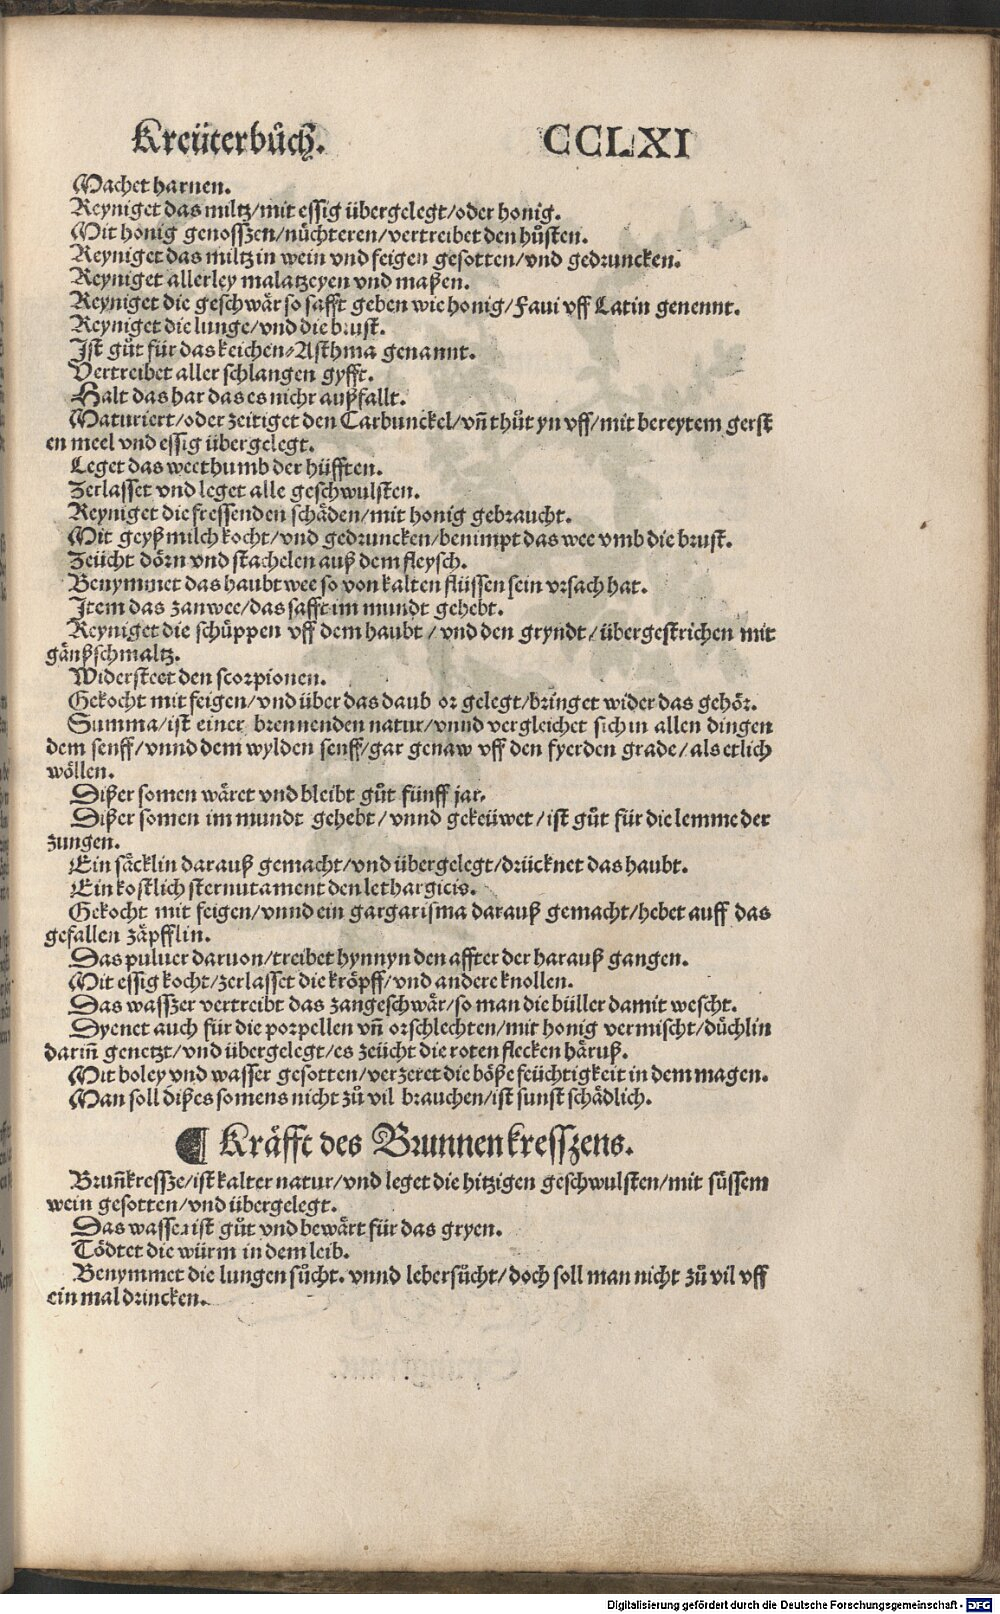 Kreüterbůch. CCLXI
Machet harnen.
Reyniget das miltz/mit essig übergelegt/oder honig.
Mit honig genosszen/nüchteren/vertreibet den hůsten.
Reyniget das miltz in wein vnd feigen gesotten/vnd gedruncken.
Reyniget allerley malatzeyen vnd maßen.
Reyniget die geschwär so safft geben wie honig/Faui vff Latin genennt.
Reyniget die lunge/vnd die brust.
Ist gůt für das keichen/Asthma genannt.
Vertreibet aller schlangen gyfft.
Halt das har das es nicht außfallt.
Maturiert/oder zeitiget den Carbunckel/vñ thůt yn vff/mit bereytem gerst
en meel vnd essig übergelegt.
Leget das weethumb der hüfften.
Zerlasset vnd leget alle geschwulsten.
Reyniget die fressenden schäden/mit honig gebraucht.
Mit geyß milch kocht/vnd gedruncken/benimpt das wee vmb die brust.
Zeücht dörn vnd stachelen auß dem fleysch.
Benymmet das haubt wee so von kalten flüssen sein vrsach hat.
Item das zanwee/das safft im mundt gehebt.
Reyniget die schüppen vff dem haubt/vnd den gryndt/übergestrichen mit
gänßschmaltz.
Widersteet den scorpionen.
Gekocht mit feigen/vnd über das daub or gelegt/bringet wider das gehör.
Summa/ist einer brennenden natur/vnnd vergleichet sich in allen dingen
dem senff/vnnd dem wylden senff/gar genaw vff den fyerden grade/als etlich
wöllen.
Dißer somen wäret vnd bleibt gůt fünff jar.
Dißer somen im mundt gehebt/vnnd gekeüwet/ist gůt für die lemme der
zungen.
Ein säcklin darauß gemacht/vnd übergelegt/drücknet das haubt.
Ein kostlich sternutament den lethargicis.
Gekocht mit feigen/vnnd ein gargarisma darauß gemacht/hebet auff das
gefallen zäpfflin.
Das puluer daruon/treibet hynnyn den affter der harauß gangen.
Mit essig kocht/zerlasset die kröpff/vnd andere knollen.
Das wasszer vertreibt das zangeschwär/so man die büller damit wescht.
Dyenet auch für die porpellen vñ orschlechten/mit honig vermischt/düchlin
dariñ genetzt/vnd übergelegt/es zeücht die roten flecken häruß.
Mit boley vnd wasser gesotten/verzeret die böße feüchtigkeit in dem magen.
Man soll dißes somens nicht zů vil brauchen/ist sunst schädlich.
¶ Kräfft des Brunnenkresszens.
Bruñkressze/ist kalter natur/vnd leget die hitzigen geschwulsten/mit süssem
wein gesotten/vnd übergelegt.
Das wasser ist gůt vnd bewärt für das gryen.
Tödtet die würm in dem leib.
Benymmet die lungensůcht. vnnd lebersůcht/doch soll man nicht zů vil vff
ein mal drincken.
Digitalisierung gefördert durch die Deutsche Forschungsgemeinschaft - DFG